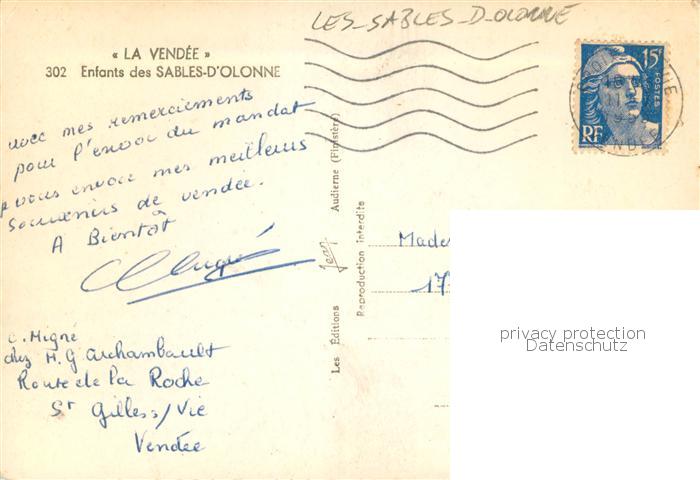 LES_SABLES_D_OLONNE
« LA VENDÉE »
302 Enfants des SABLES-D'OLONNE
avec mes remerciements
pour l'envoi du mandat
vous envoie mes meilleurs
souvenirs de vendée.
A Bientôt
C. Migné
chez M. G Archambault
Route de la Roche
St Gilles s/Vie
Vendée
Les Éditions Jean Audierne (Finistère)
Reproduction interdite
15F
POSTES
RF
Made
17
privacy protection
Datenschutz